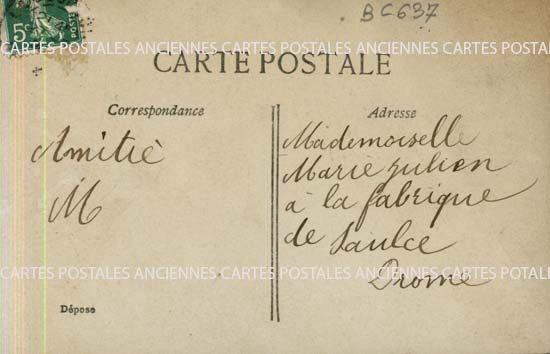 BC637
5c
POSTES
CARTES POSTALES ANCIENNES CARTES POSTALES ANCIENNES CARTES POSTALES
CARTE POSTALE
Correspondance
Adresse
Amitié
M
Mademoiselle
Marie Julien
à la fabrique
de Saulce
Drome
CARTES POSTALES ANCIENNES CARTES POSTALES ANCIENNES CARTES POSTALES
Dépose